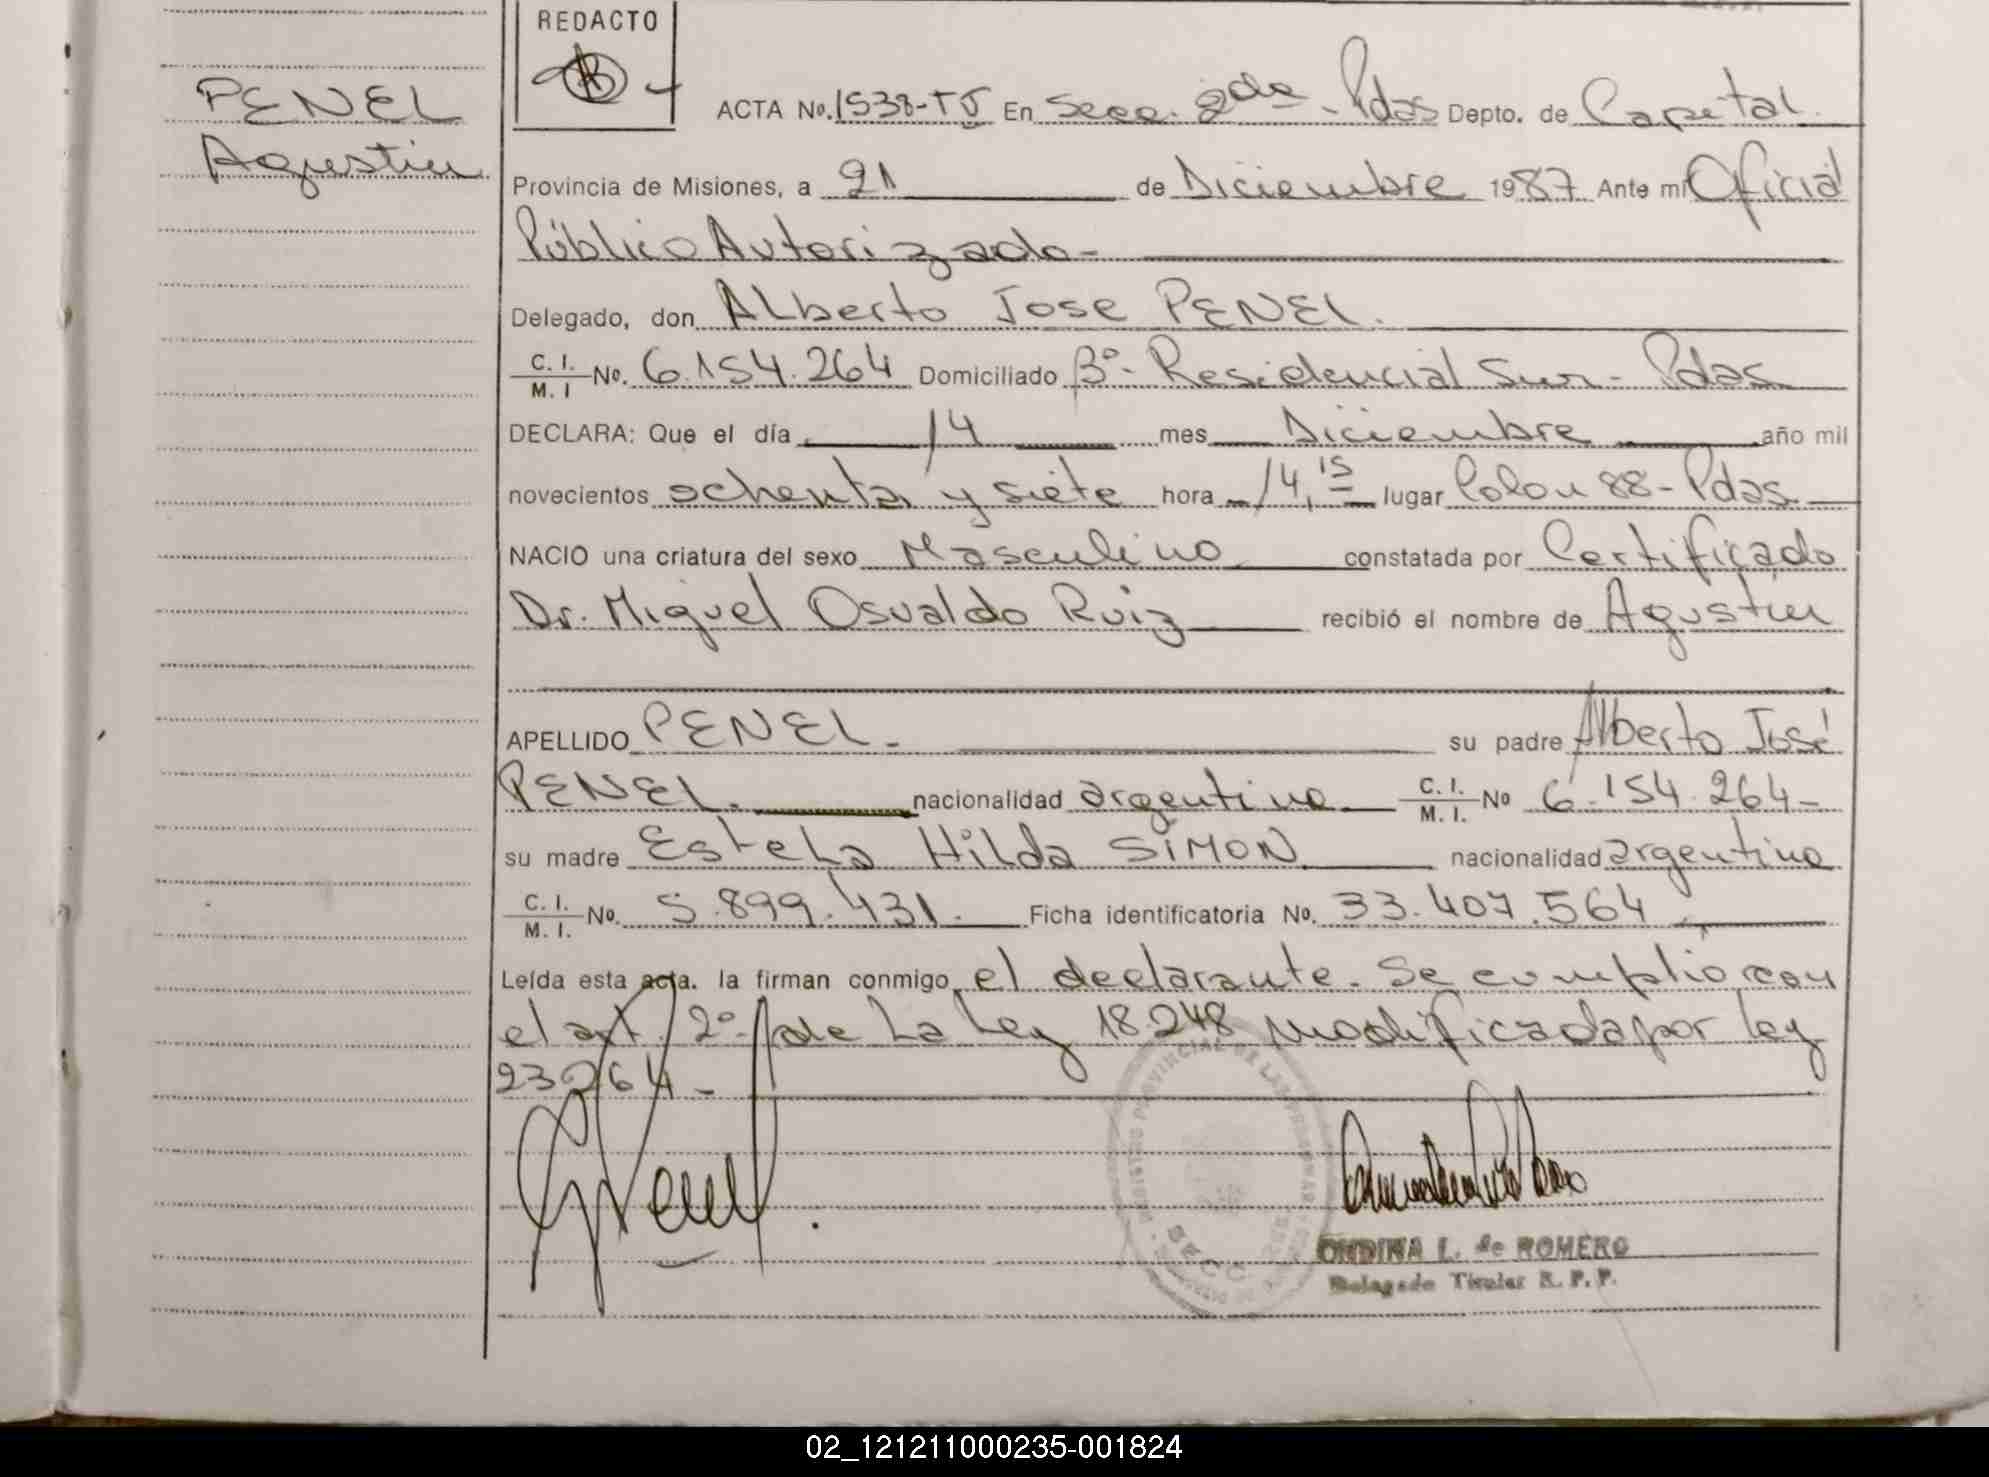 REDACTO
PENEL
Agustin
ACTA No. 1538-TV En Secc. 2da - Pdas Depto. de Capital
Provincia de Misiones, a 21 de Diciembre 1987 Ante mi Oficial
Público Autorizado-
Delegado, don Alberto Jose PENEL.
C. I. / M. I No. 6.154.264 Domiciliado Bº- Residencial Sur - Pdas
DECLARA: Que el día 14 mes Diciembre año mil
novecientos ochenta y siete hora 14,15 lugar Colon 88 - Pdas.
NACIO una criatura del sexo Masculino constatada por Certificado
Dr. Miguel Osvaldo Ruiz recibió el nombre de Agustin
APELLIDO PENEL - su padre Alberto José
PENEL. nacionalidad argentina C. I. / M. I. No 6.154.264-
su madre Estela Hilda SIMON nacionalidad argentina
C. I. / M. I. No. 5.899.431. Ficha identificatoria No. 33.407.564
Leída esta acta. la firman conmigo el declarante. Se cumplió con
el art. 2º de La Ley 18.248 modificada por Ley
23264-
SECC.
ONDINA L. de ROMERO
Delegado Titular R. P. P.
02_121211000235-001824